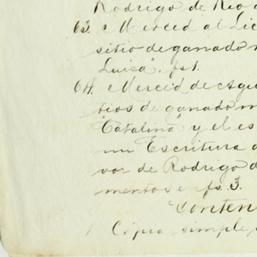 Rodrigo de Rio d
63. Merced al Lic
sitio de ganado m
Luisa". fs 1.
64. Merced de Agu
tios de ganado m
Catalina" y el es
un Escritura d
vor de Rodrigo d
mentos en fs. 3.
Conten
1 Copia simple